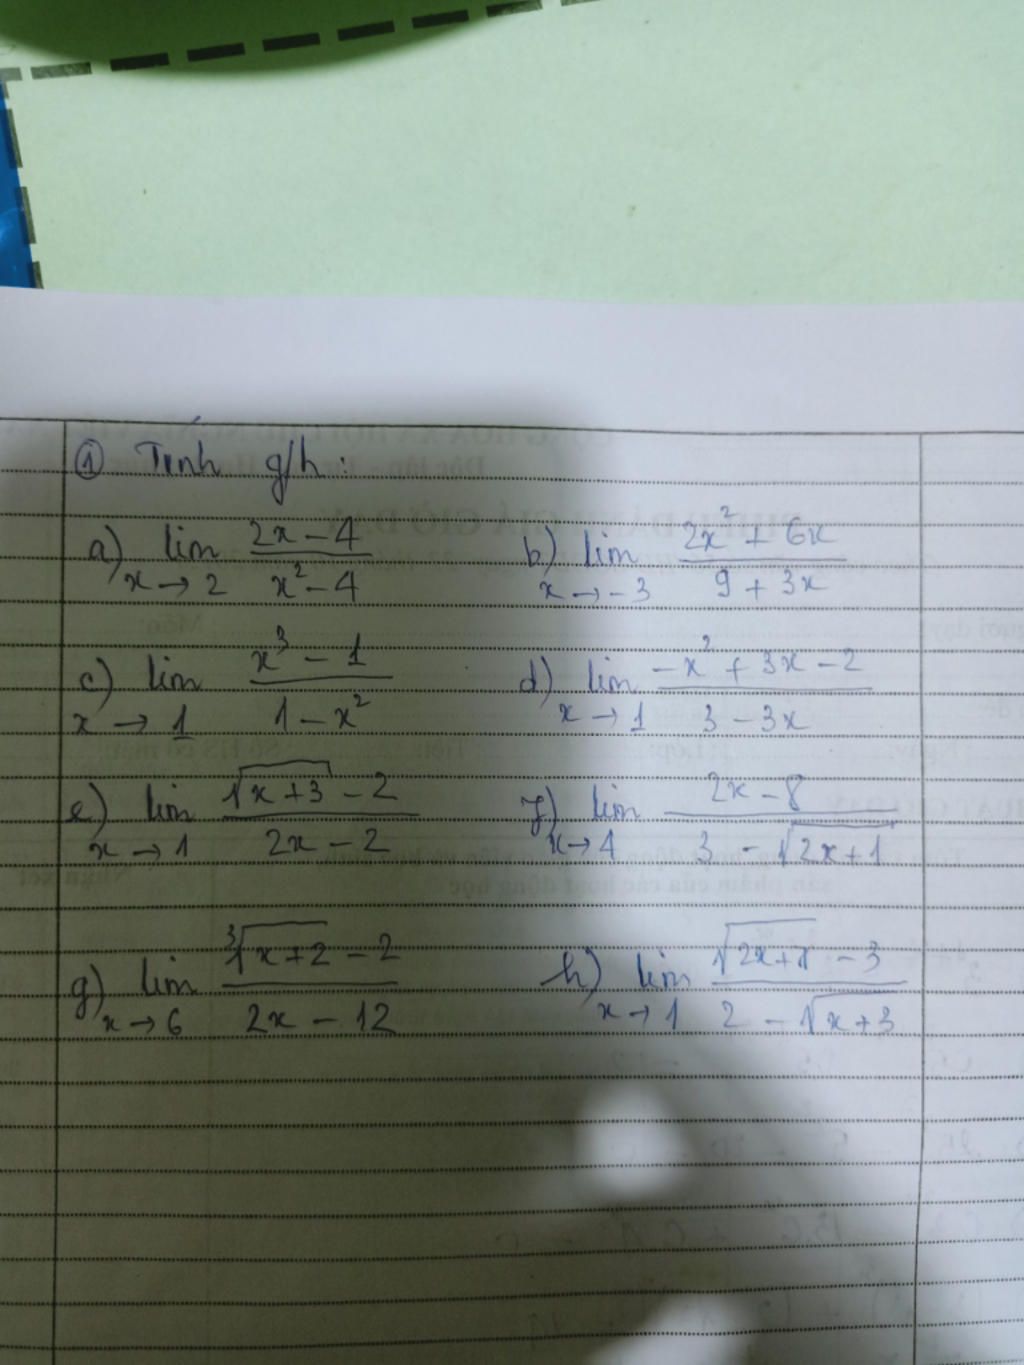 ① Tính g/h:
a) lim x→2 (2x - 4)/(x² - 4)
b) lim x→-3 (2x² + 6x)/(9 + 3x)
c) lim x→1 (x³ - 1)/(1 - x²)
d) lim x→1 (-x² + 3x - 2)/(3 - 3x)
e) lim x→1 (√(x+3) - 2)/(2x - 2)
f) lim x→4 (2x - 8)/(3 - √(2x+1))
g) lim x→6 (∛(x+2) - 2)/(2x - 12)
h) lim x→1 (√(2x+7) - 3)/(2 - √(x+3))